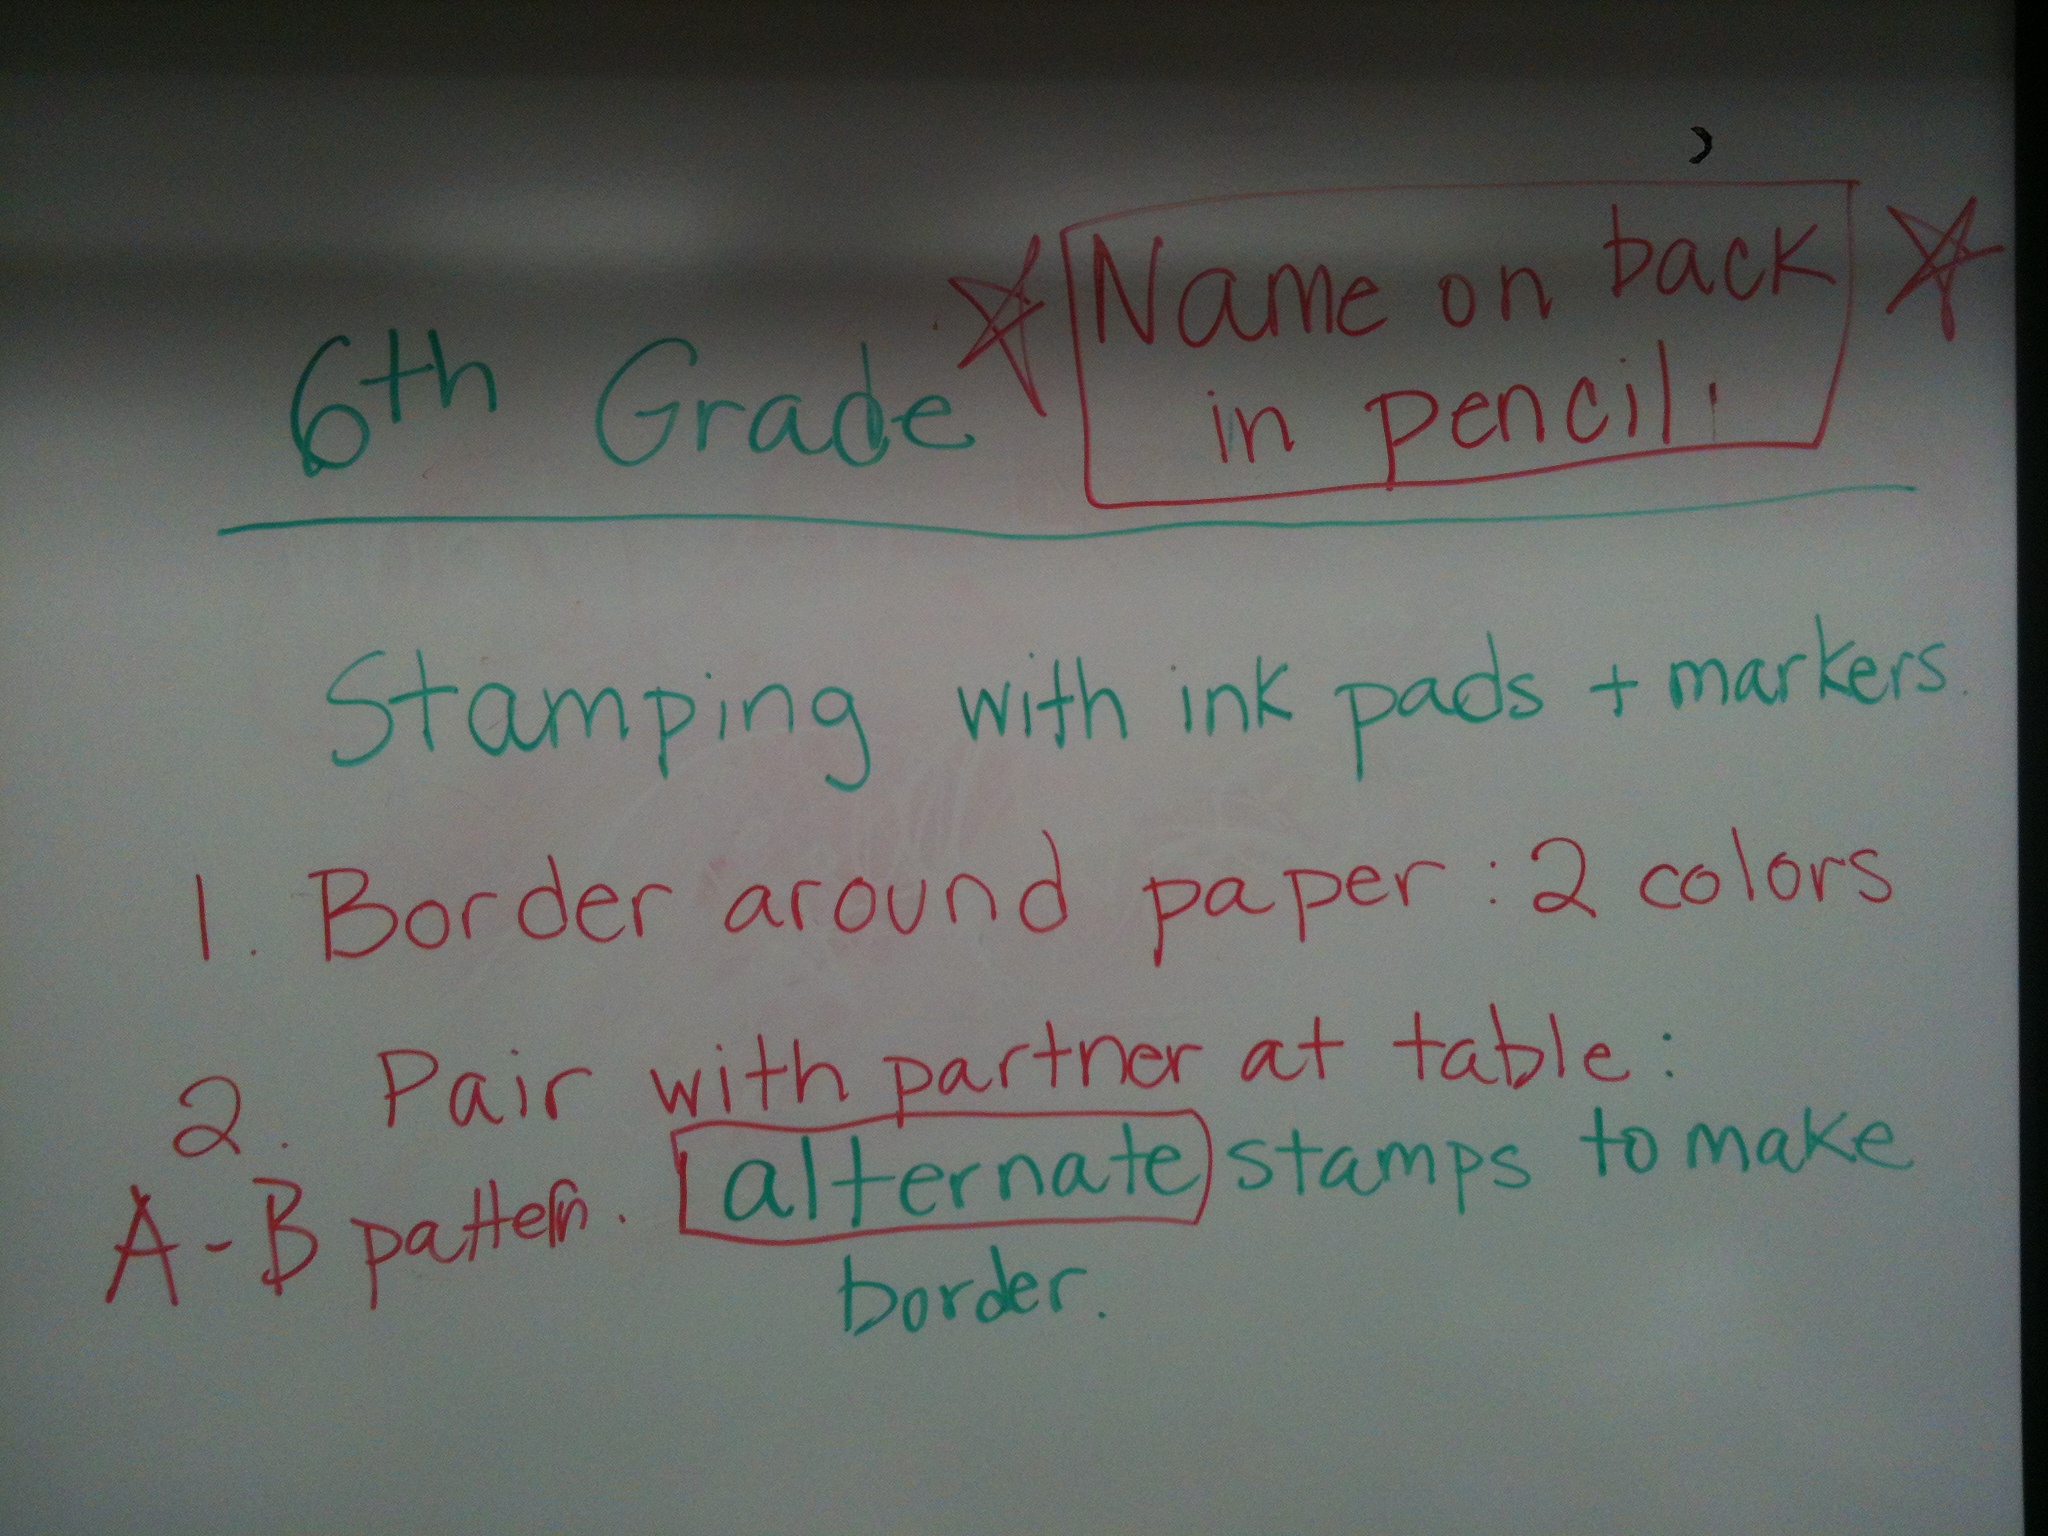 6th Grade
Name on back
in pencil!
Stamping with ink pads + markers.
1. Border around paper: 2 colors
2. Pair with partner at table:
A-B pattern. alternate stamps to make
border.